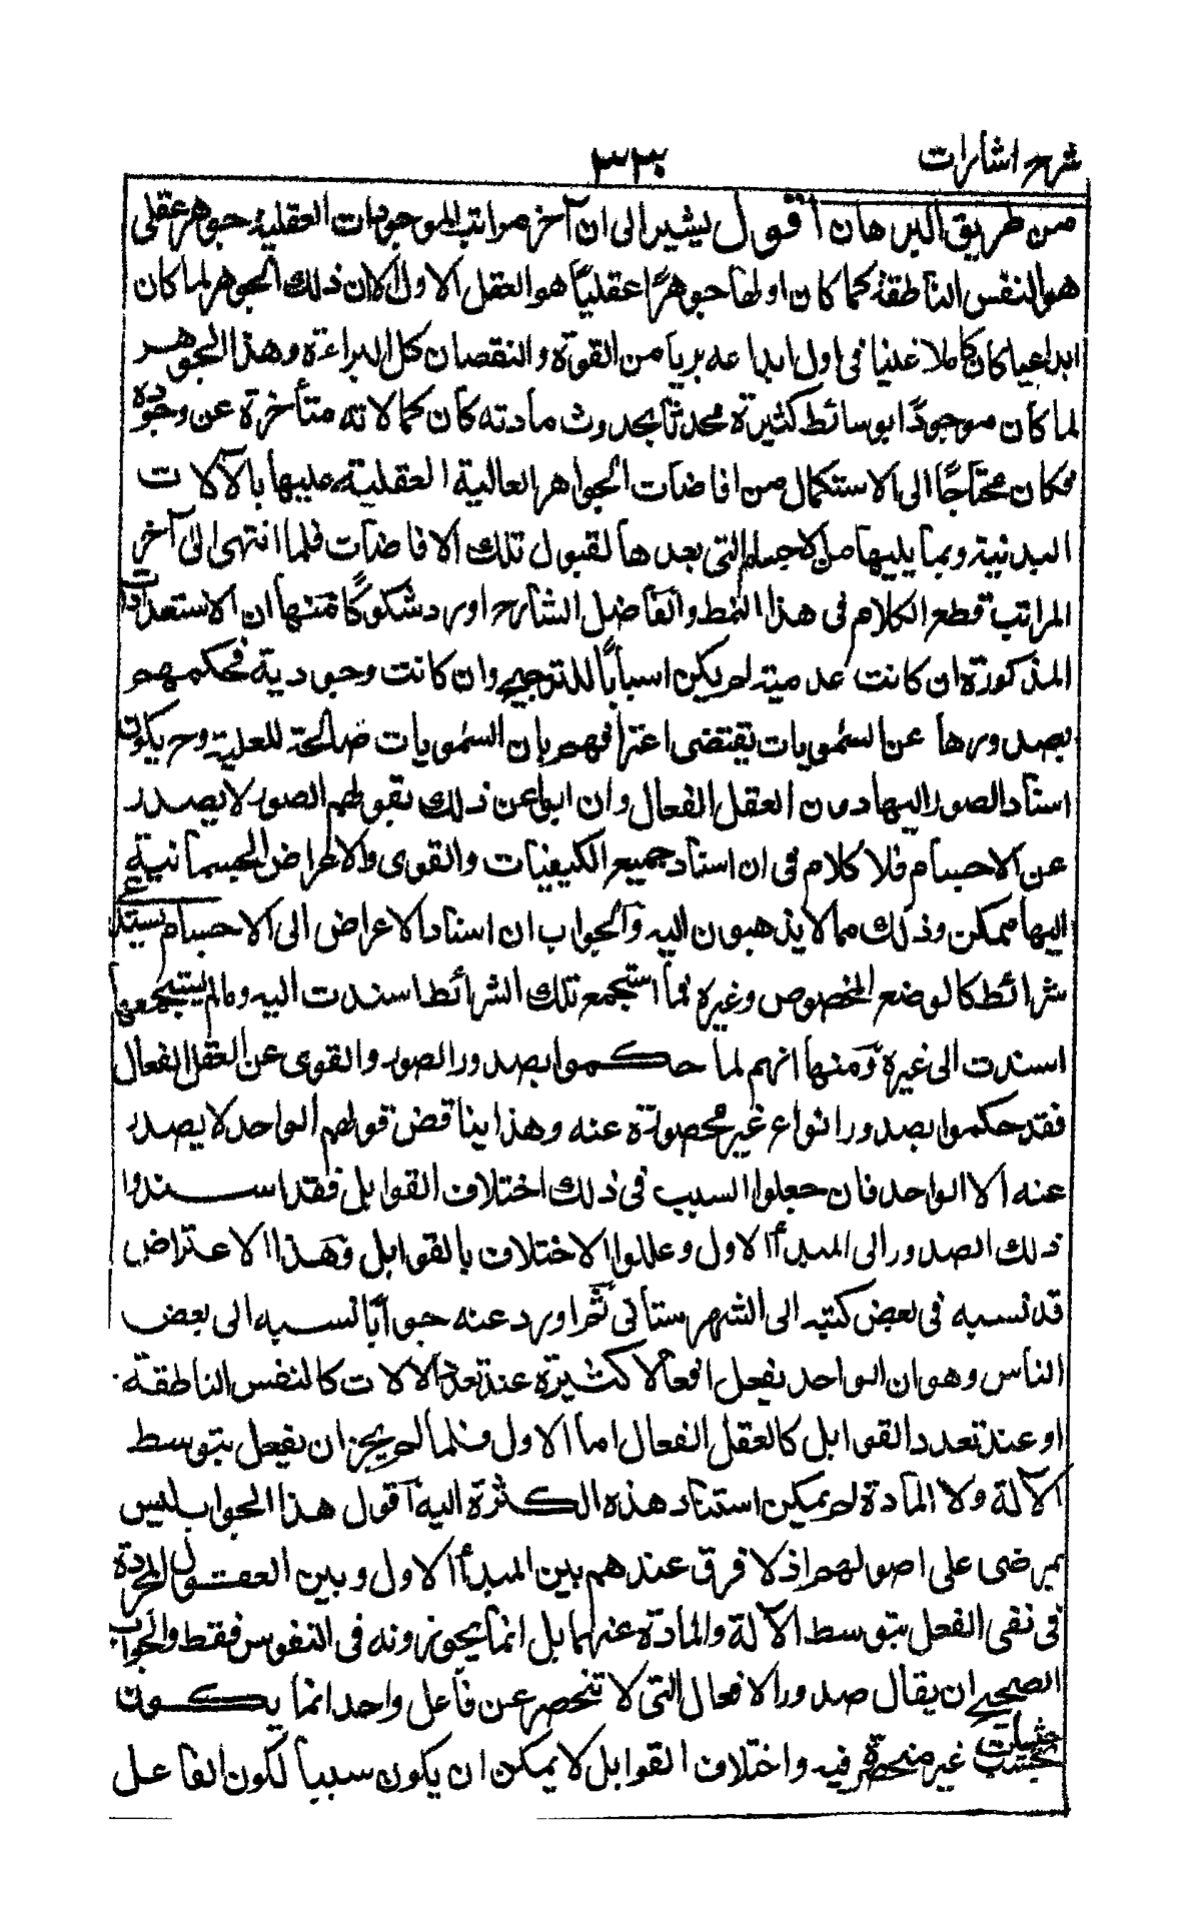 شرح اشارات
٣٣٠
من طريق البرهان اقول يشير الى ان آخر مراتب الموجودات العقلية جوهر عقلى
هو النفس الناطقة كما كان اولها جوهرًا عقليًا هو العقل الاول الا ان ذلك الجوهر لما كان
ابداعيا كان كاملا غنيا فى اول ابداعه بريا من القوة والنقصان كل البراءة وهذا الجوهر
لما كان موجودًا بوسائط كثيرة محدثا بحدوث مادته كان كمالاته متأخرة عن وجوده
فكان محتاجًا الى الاستكمال من افاضات الجواهر العالية العقلية عليها بالآلات
البدنية وبما يليها من الاجسام التى بعدها لقبول تلك الافاضات فلما انتهى الى آخر
المراتب قطع الكلام فى هذا النمط والفاضل الشارح اورد شكوكًا منها ان الاستعدادات
المذكورة ان كانت عدمية لم يكن اسبابًا للترجيح وان كانت وجودية فحكمهم
بصدورها عن السمويات يقتضى اعترافهم بان السمويات صالحة للعلية وح يكون
اسناد الصور اليها دون العقل الفعال وان ابوا عن ذلك بقولهم الصور لا يصدر
عن الاجسام فلا كلام فى ان اسناد جميع الكيفيات والقوى والاعراض الجسمانية
اليها ممكن وذلك مما لا يذهبون اليه والجواب ان اسناد الاعراض الى الاجسام يستدعى
شرائط كالوضع المخصوص وغيره فما استجمع تلك الشرائط اسندت اليه وما لم يستجمعها
اسندت الى غيره ومنها انهم لما حكموا بصدور الصور والقوى عن العقل الفعال
فقد حكموا بصدور انواع غير محصورة عنه وهذا يناقض قولهم الواحد لا يصدر
عنه الا الواحد فان جعلوا السبب فى ذلك اختلاف القوابل فقد اسندوا
ذلك الصدور الى المبدأ الاول وعللوا الاختلاف بالقوابل وهذا الاعتراض
قد نسبه فى بعض كتبه الى الشهرستانى ثم اورد عنه جوابًا نسبه الى بعض
الناس وهو ان الواحد يفعل افعالا كثيرة عند تعدد الآلات كالنفس الناطقة
او عند تعدد القوابل كالعقل الفعال اما الاول فلما لم يجز ان يفعل بتوسط
الآلة ولا المادة لم يمكن استناد هذه الكثرة اليه اقول هذا الجواب ليس
بمرضى على اصولهم اذ لا فرق عندهم بين المبدأ الاول وبين العقول المجردة
فى نفى الفعل بتوسط الآلة والمادة عنهما بل انما يجوزونه فى النفوس فقط والجواب
الصحيح ان يقال صدور الافعال التى لا تنحصر عن فاعل واحد انما يكون
بحسب حيثيات غير منحصرة فيه واختلاف القوابل لا يمكن ان يكون سببا لكون الفاعل